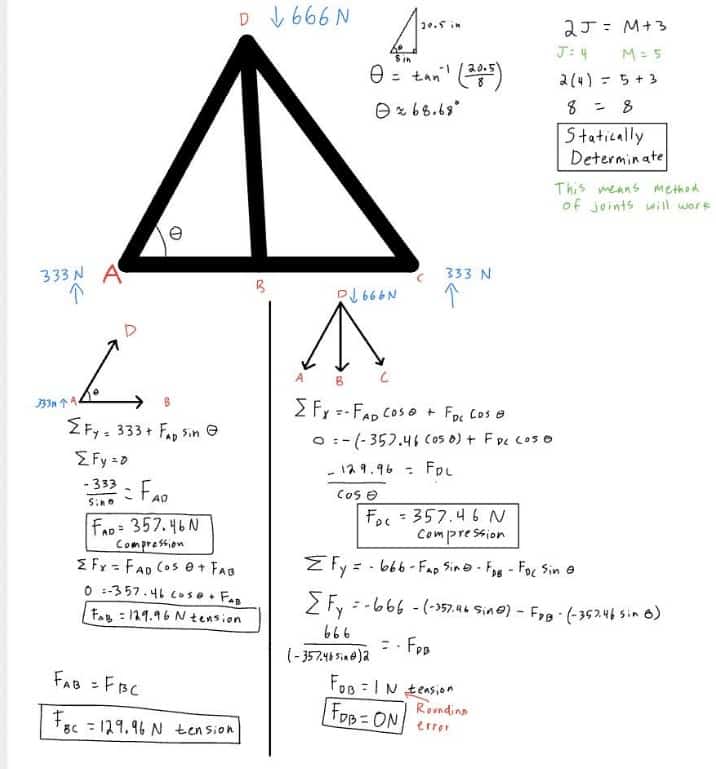 D ↓666N
20.5 in
θ
8 in
θ = tan⁻¹ (20.5/8)
θ ≈ 68.68°
2J = M+3
J=4 M=5
2(4) = 5+3
8 = 8
Statically
Determinate
This means method
of joints will work
θ
333 N A
↑
B
C 333 N
↑
D
333n ↑ A θ B
ΣFy = 333 + F_AD sin θ
ΣFy = 0
-333/sinθ = F_AD
F_AD = 357.46N
Compression
ΣFx = F_AD Cos θ + F_AB
0 = -357.46 Cos θ + F_AB
F_AB = 129.96 N tension
F_AB = F_BC
F_BC = 129.96 N tension
D↓666N
A B C
ΣFx = -F_AD Cos θ + F_DC Cos θ
0 = -(-357.46 Cos θ) + F_DC Cos θ
-129.96/cos θ = F_DC
F_DC = 357.46 N
Compression
ΣFy = -666 - F_AD Sin θ - F_DB - F_DC Sin θ
ΣFy = -666 - (-357.46 Sin θ) - F_DB - (-357.46 sin θ)
666/(-357.46 sin θ)2 = -F_DB
F_DB = 1 N tension
F_DB = 0N Rounding
error